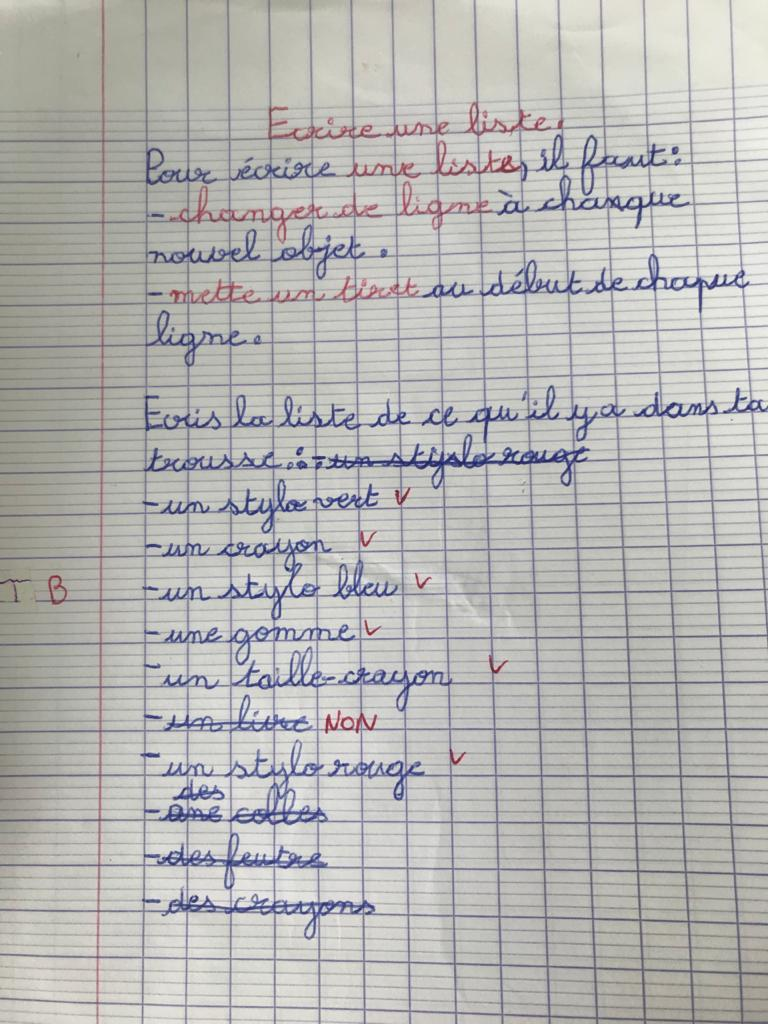 Ecrire une liste.
Pour écrire une liste, il faut:
- changer de ligne à chanque
nouvel objet.
- mette un tiret au début de chaque
ligne.
Ecris la liste de ce qu'il y a dans ta
trousse : - un stylo rouge
- un stylo vert V
- un crayon V
- un stylo bleu V
T B
- une gomme V
- un taille-crayon V
- un livre NON
- un stylo rouge V
des
- une colles
- des feutre
- des crayons